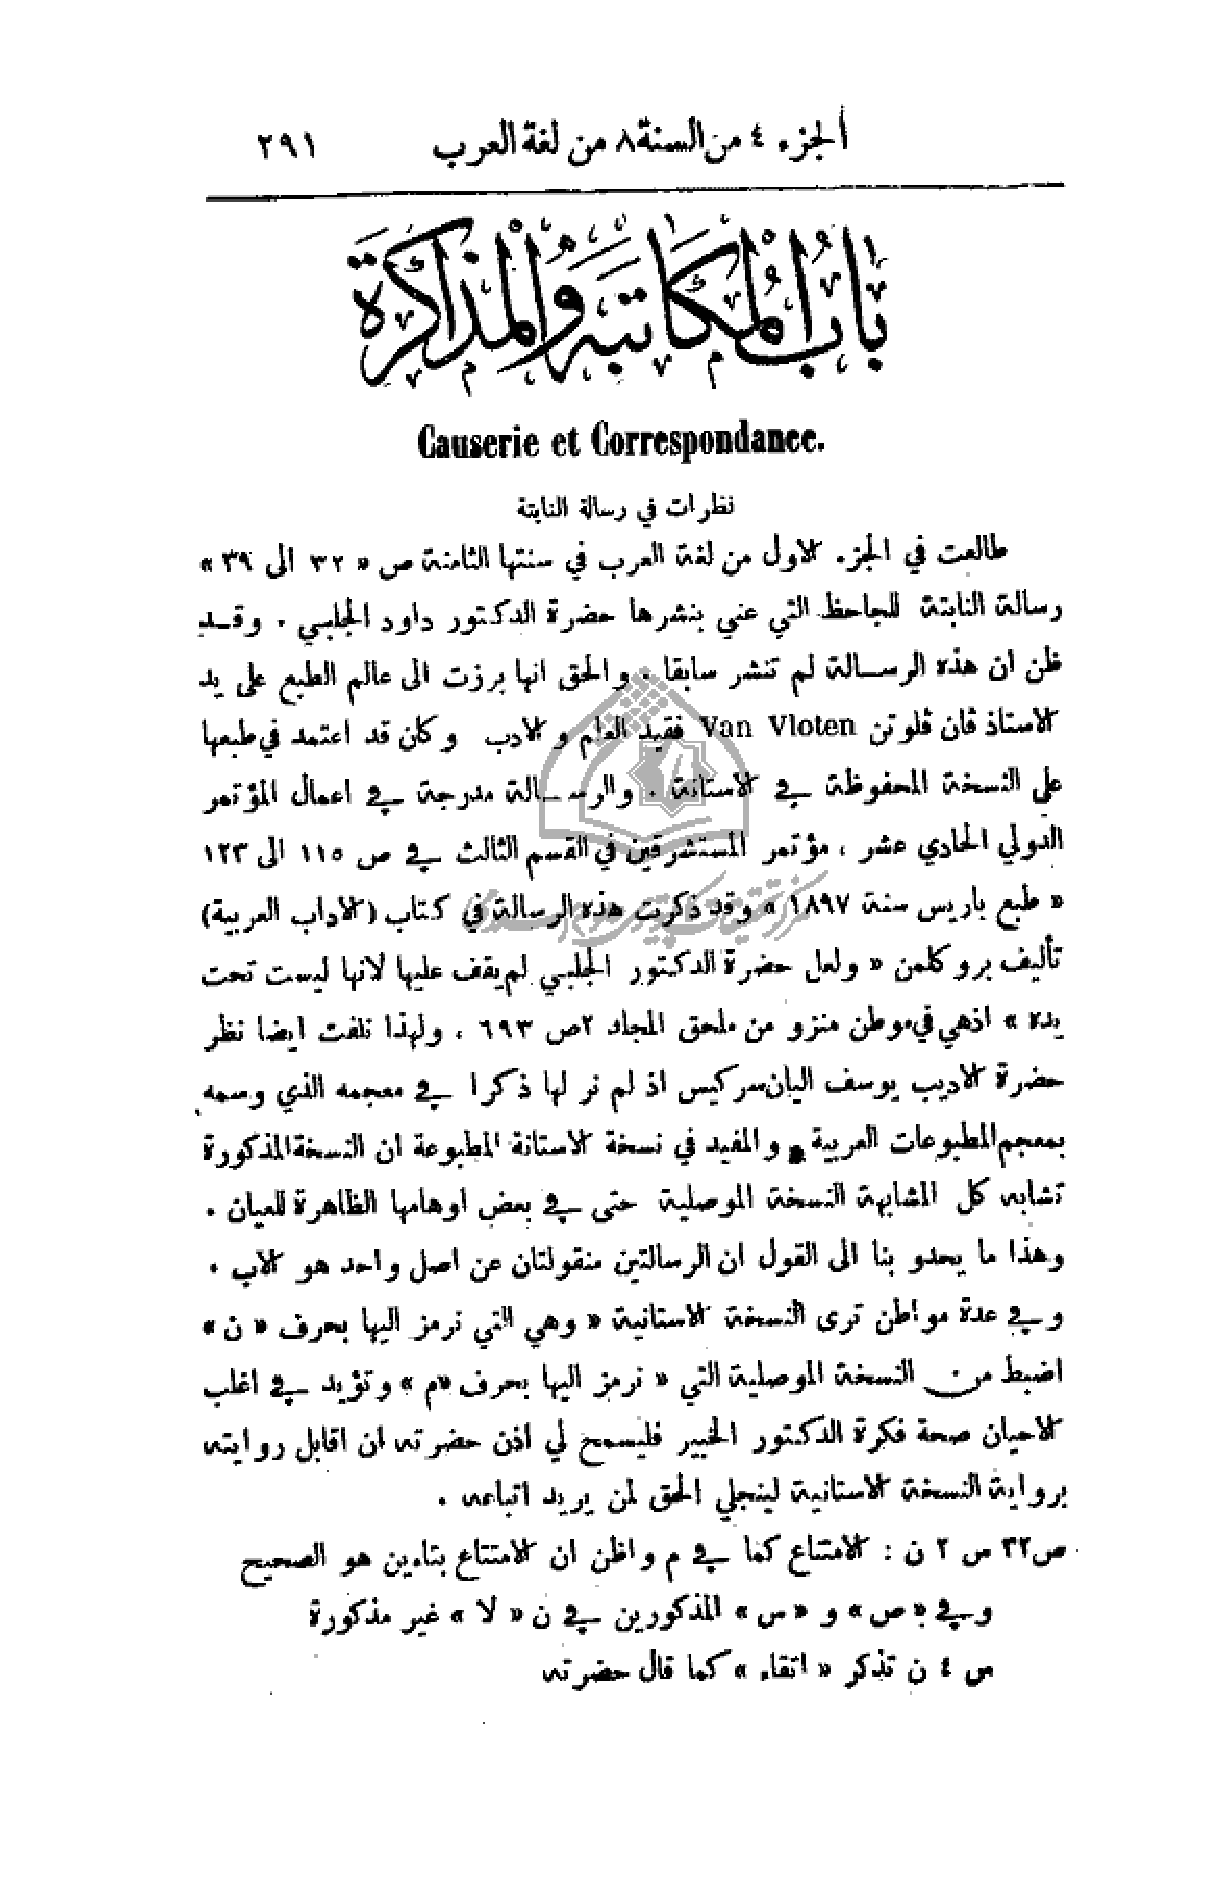 الجزء ٤ من السنة ٨ من لغة العرب ٢٩١
باب المكاتبة والمذاكرة
Causerie et Correspondance.
نظرات في رسالة النابتة
طالعت في الجزء الاول من لغة العرب في سنتها الثامنة ص « ٣٢ الى ٣٩ »
رسالة النابتة للجاحظ التي عني بنشرها حضرة الدكتور داود الجلبي . وقـد
ظن ان هذه الرسـالة لم تنشر سابقا . والحق انها برزت الى عالم الطبع على يد
الاستاذ فان فلوتن Van Vloten فقيد العلم والادب وكان قد اعتمد في طبعها
على النسخة المحفوظة في الاستانة . والرسـالة مدرجة في اعمال المؤتمر
الدولي الحادي عشر ، مؤتمر المستشرقين في القسم الثالث في ص ١١٥ الى ١٢٣
« طبع باريس سنة ١٨٩٧ » وقد ذكرت هذه الرسالة في كتاب (الاداب العربية)
تأليف بروكلمن « ولعل حضرة الدكتور الجلبي لم يقف عليها لانها ليست تحت
يده » اذ هي في موطن منزو من ملحق المجلد ٢ ص ٦٩٣ ، ولهذا نلفت ايضا نظر
حضرة الاديب يوسف اليان سركيس اذ لم نر لها ذكرا في معجمه الذي وسمه
بمعجم المطبوعات العربية والمفيد في نسخة الاستانة المطبوعة ان النسخة المذكورة
تشابه كل المشابهة النسخة الموصلية حتى في بعض اوهامها الظاهرة للعيان .
وهذا ما يحدو بنا الى القول ان الرسالتين منقولتان عن اصل واحد هو الاب .
وفي عدة مواطن ترى النسخة الاستانية « وهي التي نرمز اليها بحرف « ن »
اضبط من النسخة الموصلية التي « نرمز اليها بحرف «م » وتؤيد في اغلب
الاحيان صحة فكرة الدكتور الخبير فليسمح لي اذن حضرته ان اقابل روايته
برواية النسخة الاستانية لينجلي الحق لمن يريد اتباعه .
ص ٣٢ س ٢ ن : الامتناع كما في م واظن ان الامتتاع بتاءين هو الصحيح
وفي « ص » و « س » المذكورين في ن « لا » غير مذكورة
س ٤ ن تذكر « اتقاء » كما قال حضرته